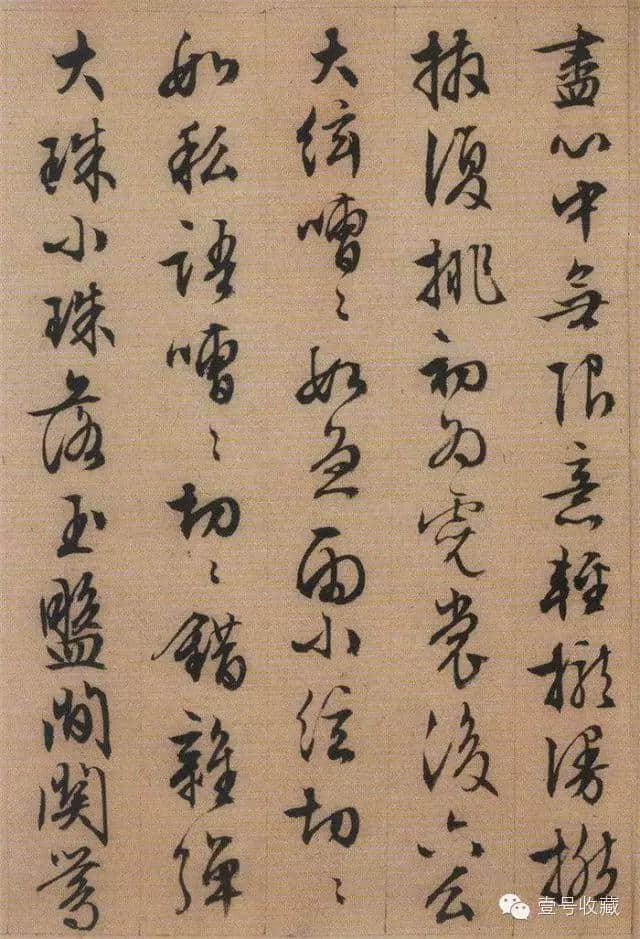 盡心中無限意輕攏慢撚
抹復挑初為霓裳後六么
大絃嘈々如急雨小絃切々
如私語嘈々切々錯雜彈
大珠小珠落玉盤間關鶯
壹号收藏